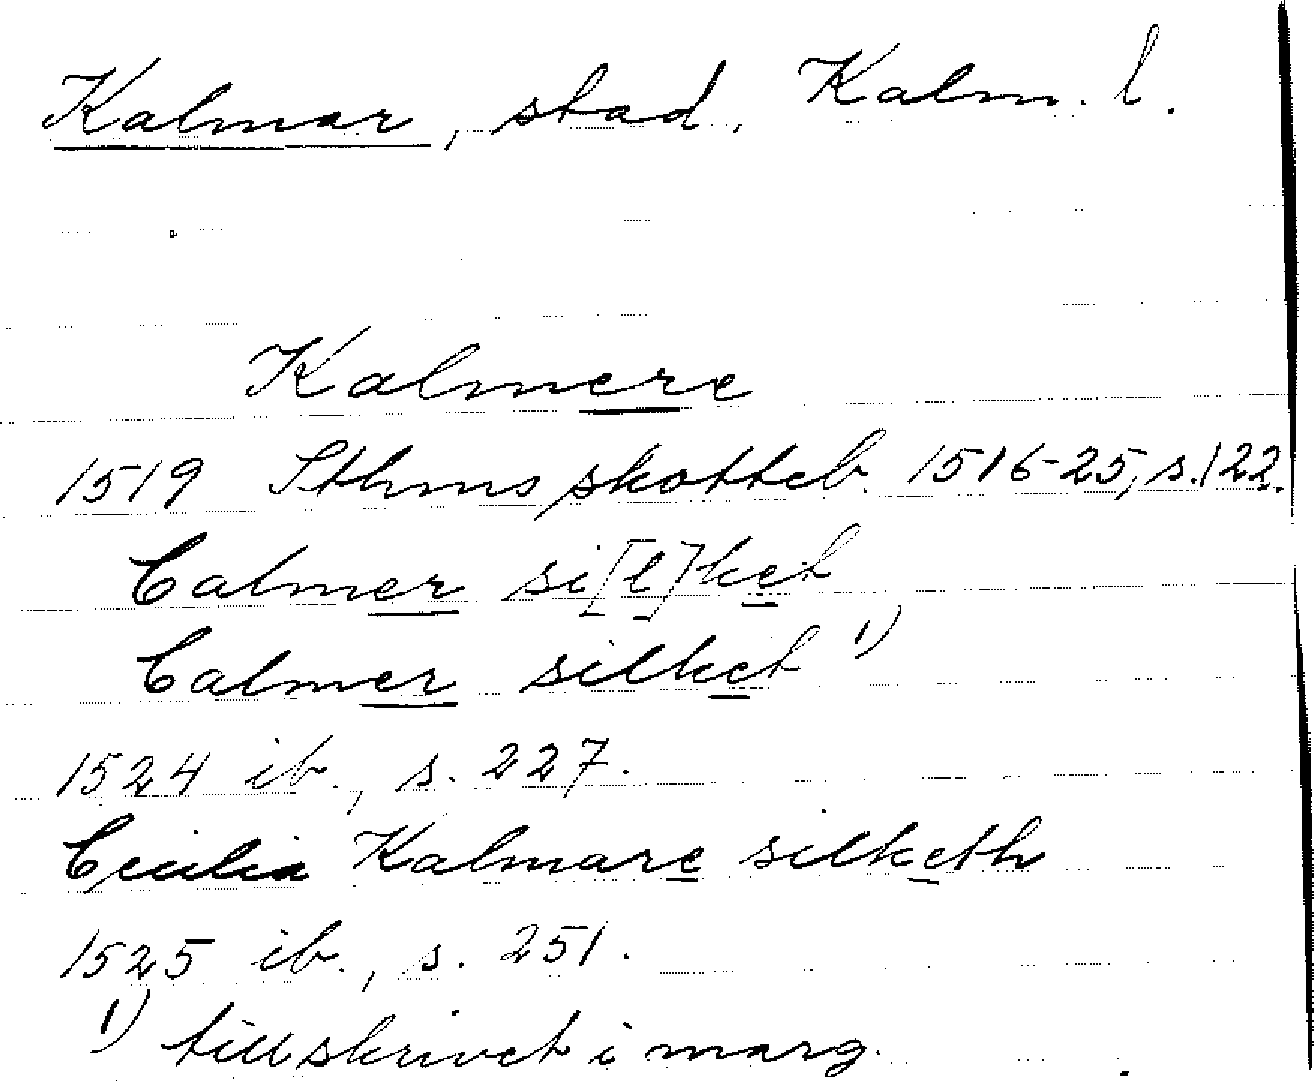 Kalmar, stad, Kalm. l.
Kalmere
1519 Sthms skotteb. 1516-25, s. 122.
Calmer si[l]ket
Calmer silket 1)
1524 ib., s. 227.
Cecilia Kalmare silketh
1525 ib., s. 251.
1) tillskrivet i marg.